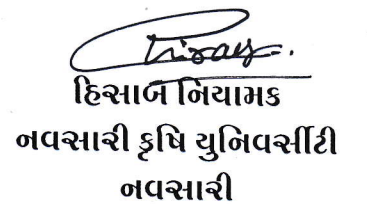 હિસાબ નિયામક
નવસારી કૃષિ યુનિવર્સીટી
નવસારી